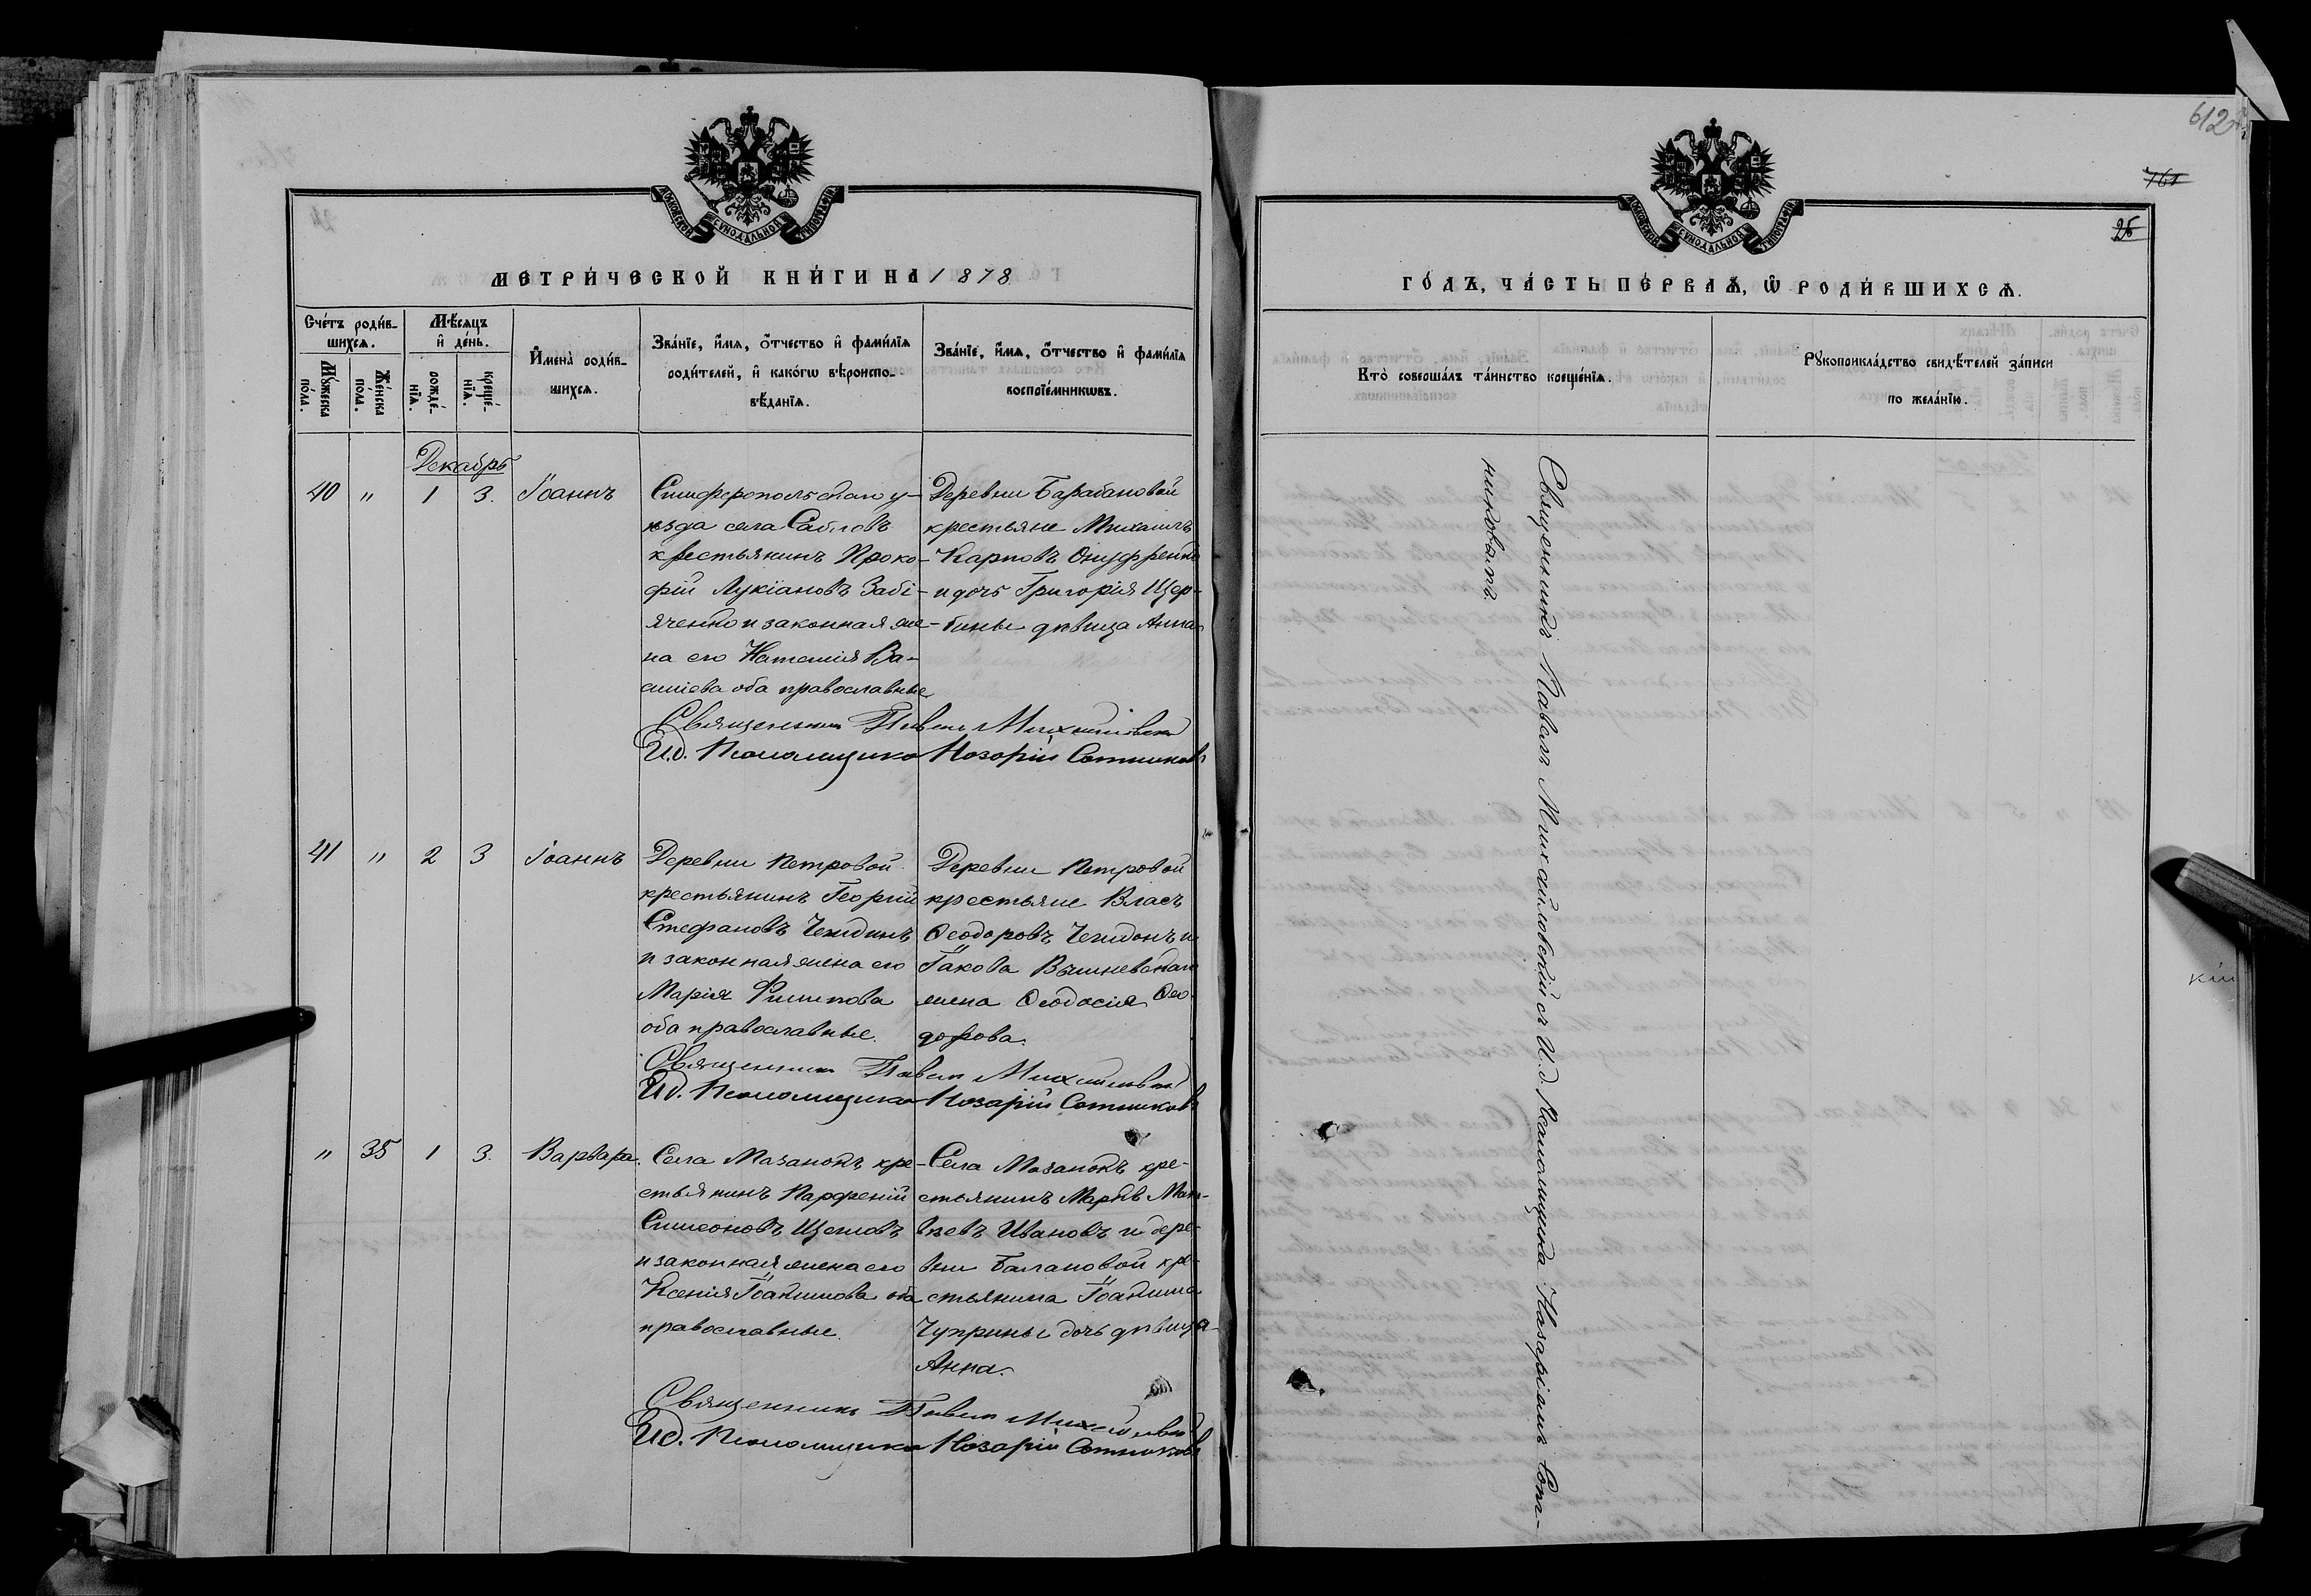 612
761
25
МОСКОВСКОЙ СУНОДАЛЬНОЙ ТИПОГРАФІИ
МЕТРИ́ЧЕСКОЙ КНИ́ГИ НА 1878
Сче́тъ роди́в-
шихсѧ.
Мꙋ́жеска по́ла.
Же́нска по́ла.
Мѣ́сѧцъ
и҆ де́нь.
рожде́-
нїѧ.
креще́-
нїѧ.
И҆мена̀ роди́в-
шихсѧ.
Зва́нїе, и҆́мѧ, ѻ҆́тчество и҆ фами́лїѧ
роди́телей, и҆ како́гѡ вѣроиспо-
вѣ́данїѧ.
Зва́нїе, и҆́мѧ, ѻ҆́тчество и҆ фами́лїѧ
воспрїе́мникѡвъ.
Декабрь
40 " 1 3. Іоаннъ
Симферопольскаго у-
ѣзда села Сабловъ
крестьянинъ Проко-
фій Лукіановъ Забі-
яченко и законная же-
на его Наталія Ва-
силіева оба православные
Деревни Барабановой
крестьяне Михаилъ
Карповъ Онуфренко
и дочь Григорія Щер-
бины дѣвица Анна
Священникъ Павелъ Михайловскій
И.д. Псаломщика Назарій Сотниковъ
41 " 2 3 Іоаннъ
Деревни Петровой
крестьянинъ Георгій
Стефановъ
и законная жена его
Марія Филипова
оба православные.
Деревни Петровой
крестьяне Власъ
Ѳеодоровъ и
Іакова Вышневскаго
жена Ѳеодосія Ѳео-
дорова.
Священникъ Павелъ Михайловскій
И.д. Псаломщика Назарій Сотниковъ
" 35 1 3. Варвара.
Села Мазанокъ кре-
стьянинъ Парфеній
Симеоновъ Щегловъ
и законная жена его
Ксенія Іоакимова оба
православные.
Села Мазанокъ кре-
стьянинъ Мат-
вѣевъ Ивановъ и дере-
вни Балановой кре-
стьянина Іоакима
Чуприны дочь дѣвица
Анна.
Священникъ Павелъ Михайловскій
И.д. Псаломщика Назарій Сотниковъ
МОСКОВСКОЙ СУНОДАЛЬНОЙ ТИПОГРАФІИ
ГО́ДЪ, ЧА́СТЬ ПЕ́РВАѦ, Ѡ҆ РОДИ́ВШИХСѦ.
Кто̀ соверша́лъ та́инство креще́нїѧ.
Рꙋкоприкла́дство свидѣ́телей за́писи
по жела́нїю.
Священникъ Павелъ Михайловскій съ И.д. Псаломщика Назаріемъ Сот-
никовымъ.